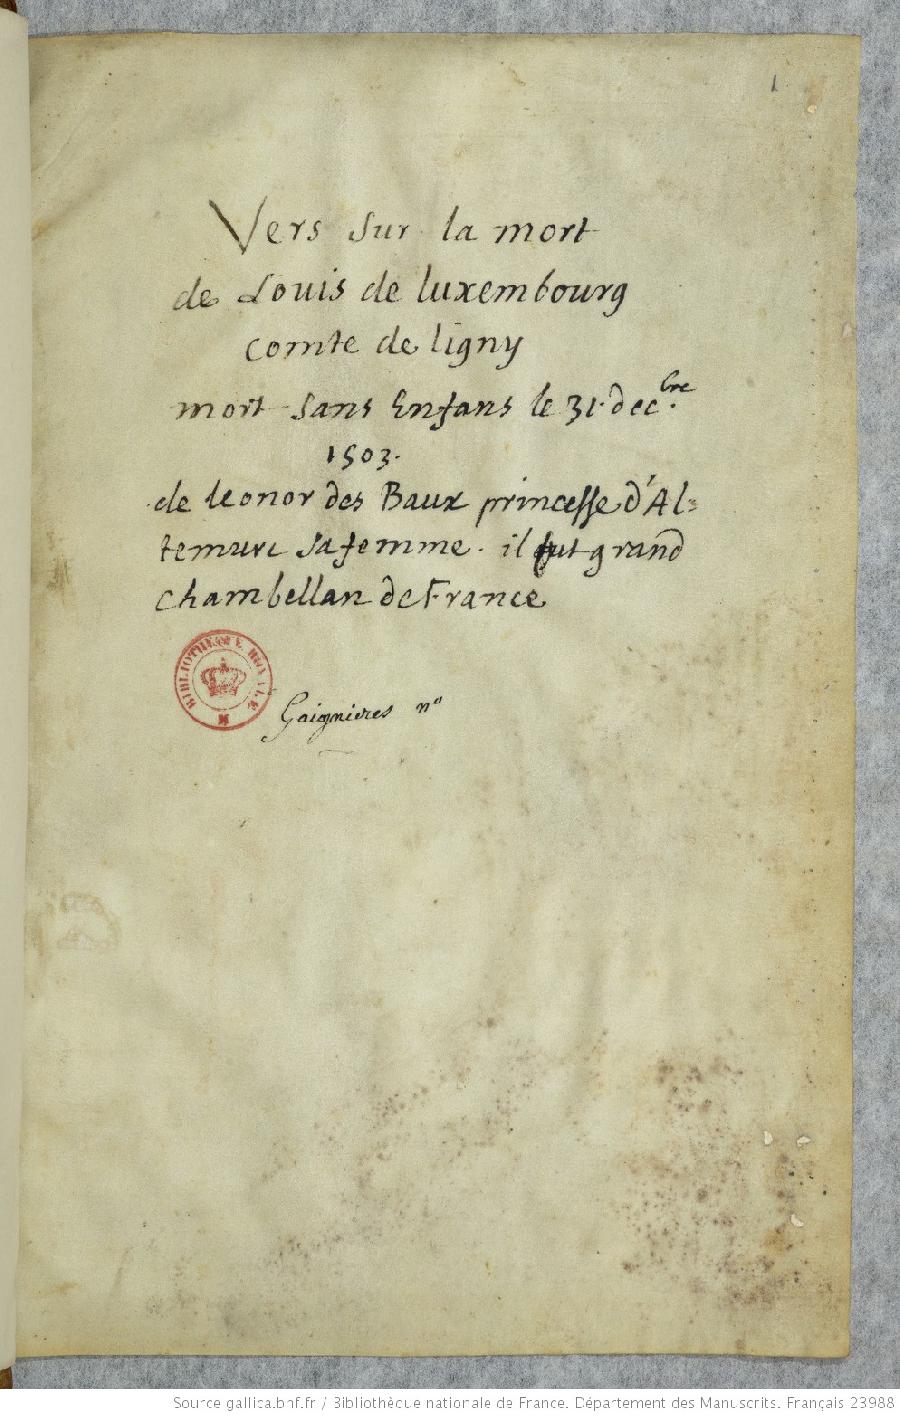 1
Vers sur la mort
de Louis de luxembourg
comte de ligny
mort sans Enfans le 31. dec.bre
1503.
de leonor des Baux princesse d'Al=
temure sa femme. il fut grand
chambellan de France
BIBLIOTHEQUE ROYALE
Gaignieres no
Source gallica.bnf.fr / Bibliothèque nationale de France. Département des Manuscrits. Français 23988